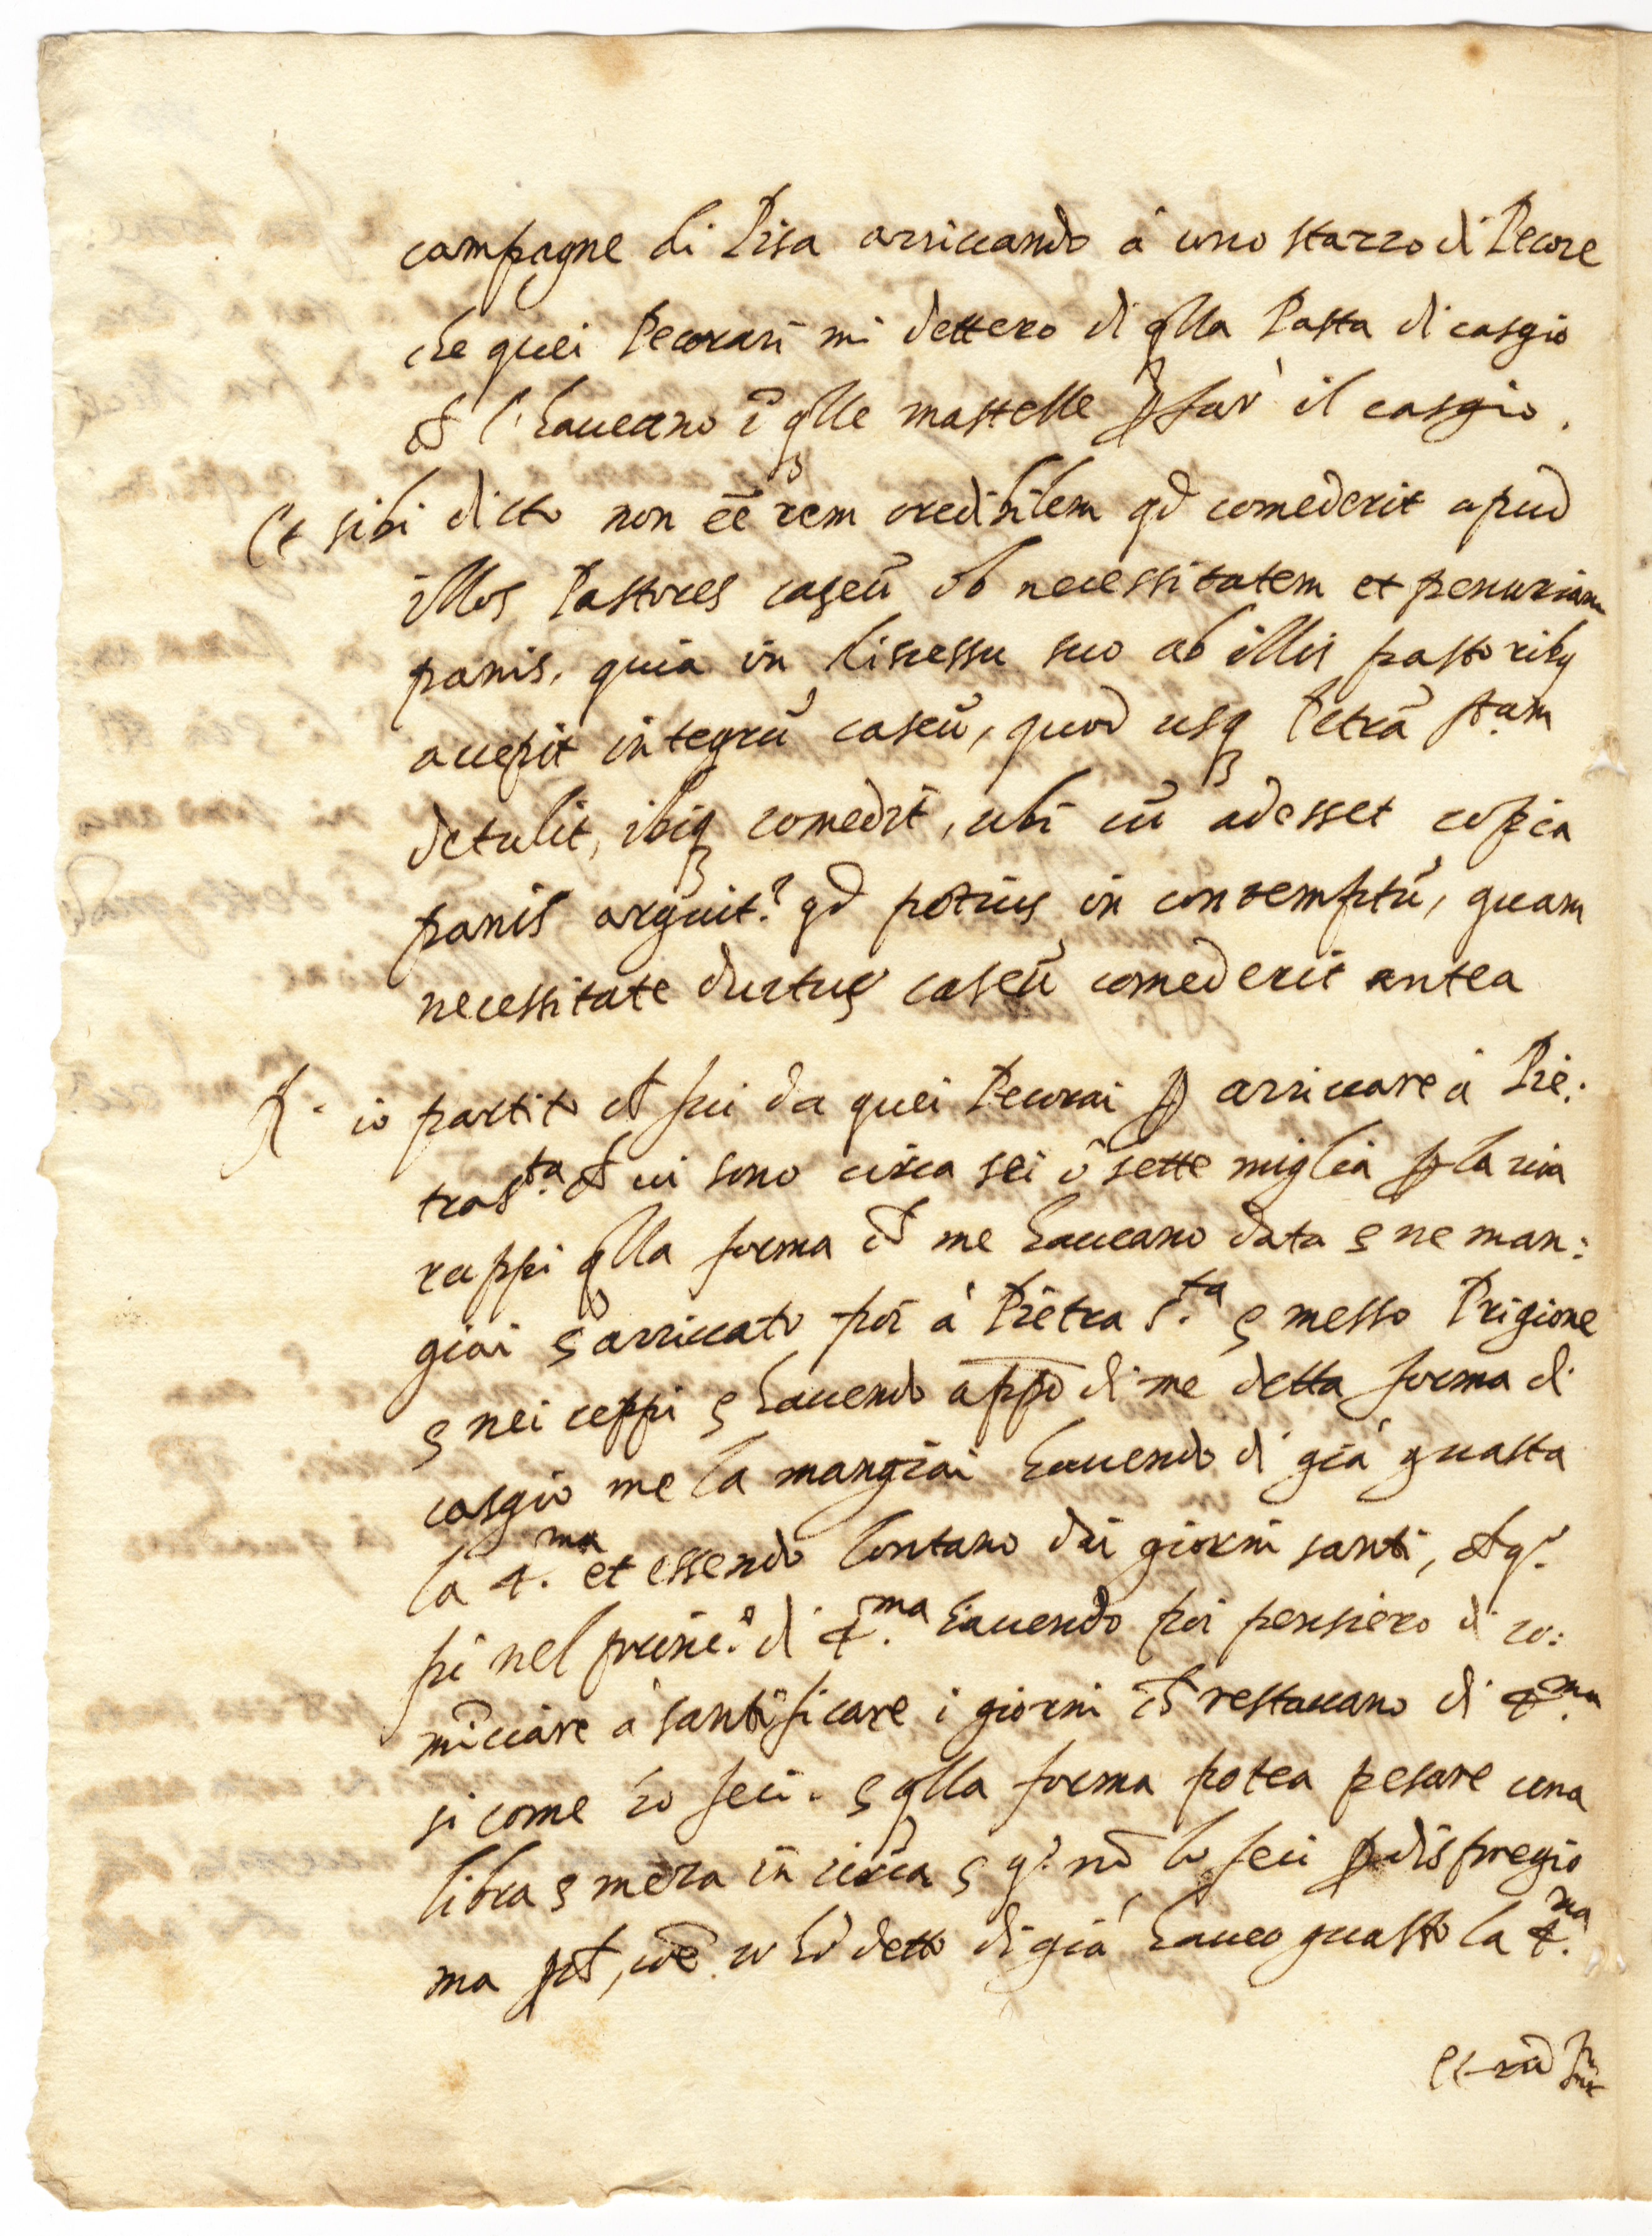 campagne di Pisa arrivando à uno stazzo di Pecore
che quei Pecorari mi dettero di qlla Pasta di casgio
ch l'haueano ĩ qlle mastelle ꝑ far il casgio.
Et sibi dicto non eē rem credibilem qd comederit apud
illos Pastores caseū ob necessitatem et penuriam
panis, quia in discessu suo ab illis pastoribꝰ
accepit integrū caseū, quod usqꝫ Petrā Stam
detulit, ibiqꝫ comedit, ubi cū adesset copia
panis arguit.ʳ qd potius in contemptū, quam
necessitate ductus caseū comederit antea
R. io partito ch fui da quei Pecorai ꝑ arriuare à Pie:
tras.ta ch ui sono circa sei ò sette miglia ꝑ la uia
ruppi qlla forma ch me haueano data e ne man:
giai e arriuato poi à Pietra S.ta e messo Prigione
e nei ceppi e hauendo appō di me detta forma di
casgio me la mangiai hauendo di già guasta
la 4.ma et essendo lontano dai giorni santi, ch q.º
fù nel princ.º di 4.ma hauendo poi pensiero di co:
mīciare à santificare i giorni ch restauano di 4.ma
si come io feci. e qlla forma potea pesare una
libra e meza in circa e q.º nō lo feci ꝑ dispregio
ma ꝑch, coē io hò detto di già haueo guasto la 4.ma